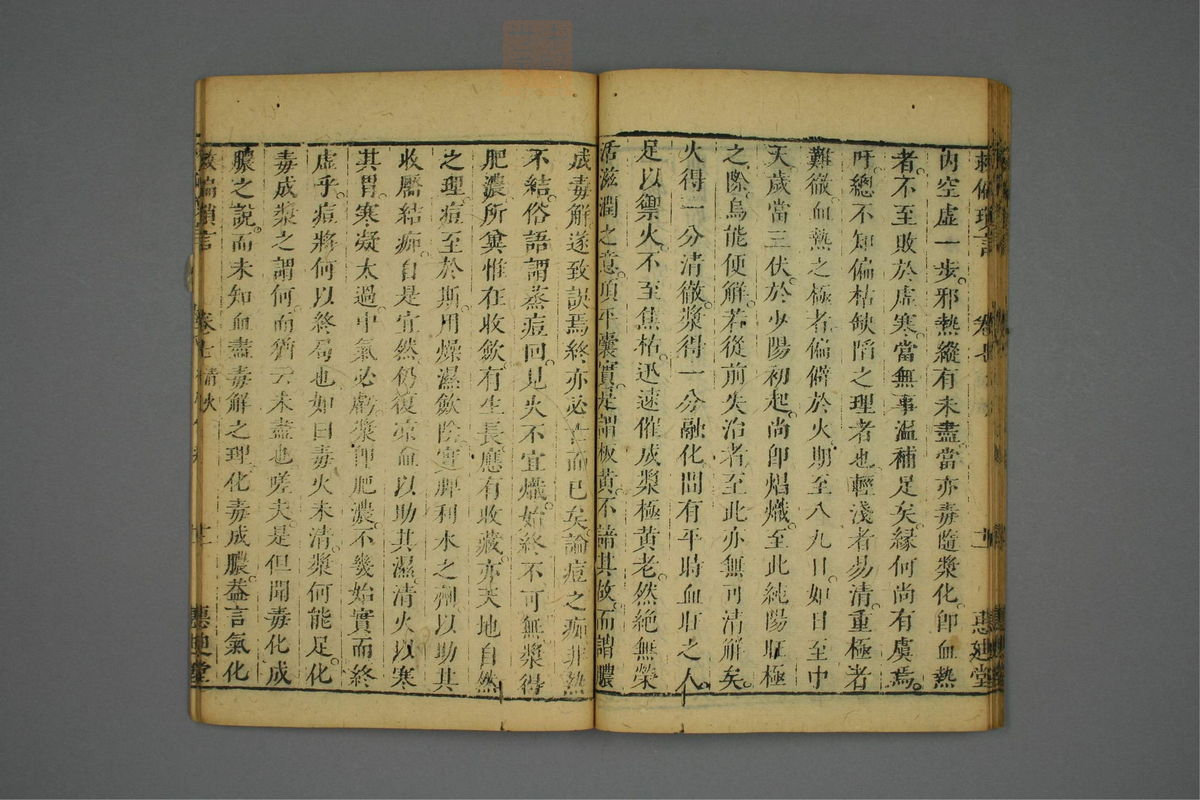 救偏瑣言 卷七 十一 惠迪堂
內空虛一步邪熱縱有未盡當亦毒隨漿化卽血熱
者不至敗於虛寒當無事溫補足矣緣何尚有虞焉
吁總不知偏枯缺陷之理者也輕淺者易清重極者
難徹血熱之極者偏僻於火期至八九日如日至中
天歲當三伏於少陽初起尚卽焰熾至此純陽旺極
之際烏能便解若從前失治者至此亦無可清解矣
火得一分清徹漿得一分融化間有平時血旺之人
足以禦火不至焦枯迅速催成漿極黃老然絕無榮
活滋潤之意頂平囊實是謂板黃不諳其故而謂膿
成毒解遂致誤焉終亦必亡而已矣論痘之痂非熱
不結俗語謂蒸痘回見火不宜熾始終不可無漿得
肥濃所冀惟在收斂有生長應有收藏亦天地自然
之理痘至於斯用燥濕斂陰實脾利水之劑以助其
收靨結痂自是宜然仍復凉血以助其濕清火以寒
其胃寒凝太過中氣必虧漿卽肥濃不幾始實而終
虛乎痘將何以終局也如曰毒火未清漿何能足化
毒成漿之謂何而猶云未盡也嗟夫是但聞毒化成
膿之說而未知血盡毒解之理化毒成膿蓋言氣化
救偏瑣言 卷七 十二 惠迪堂